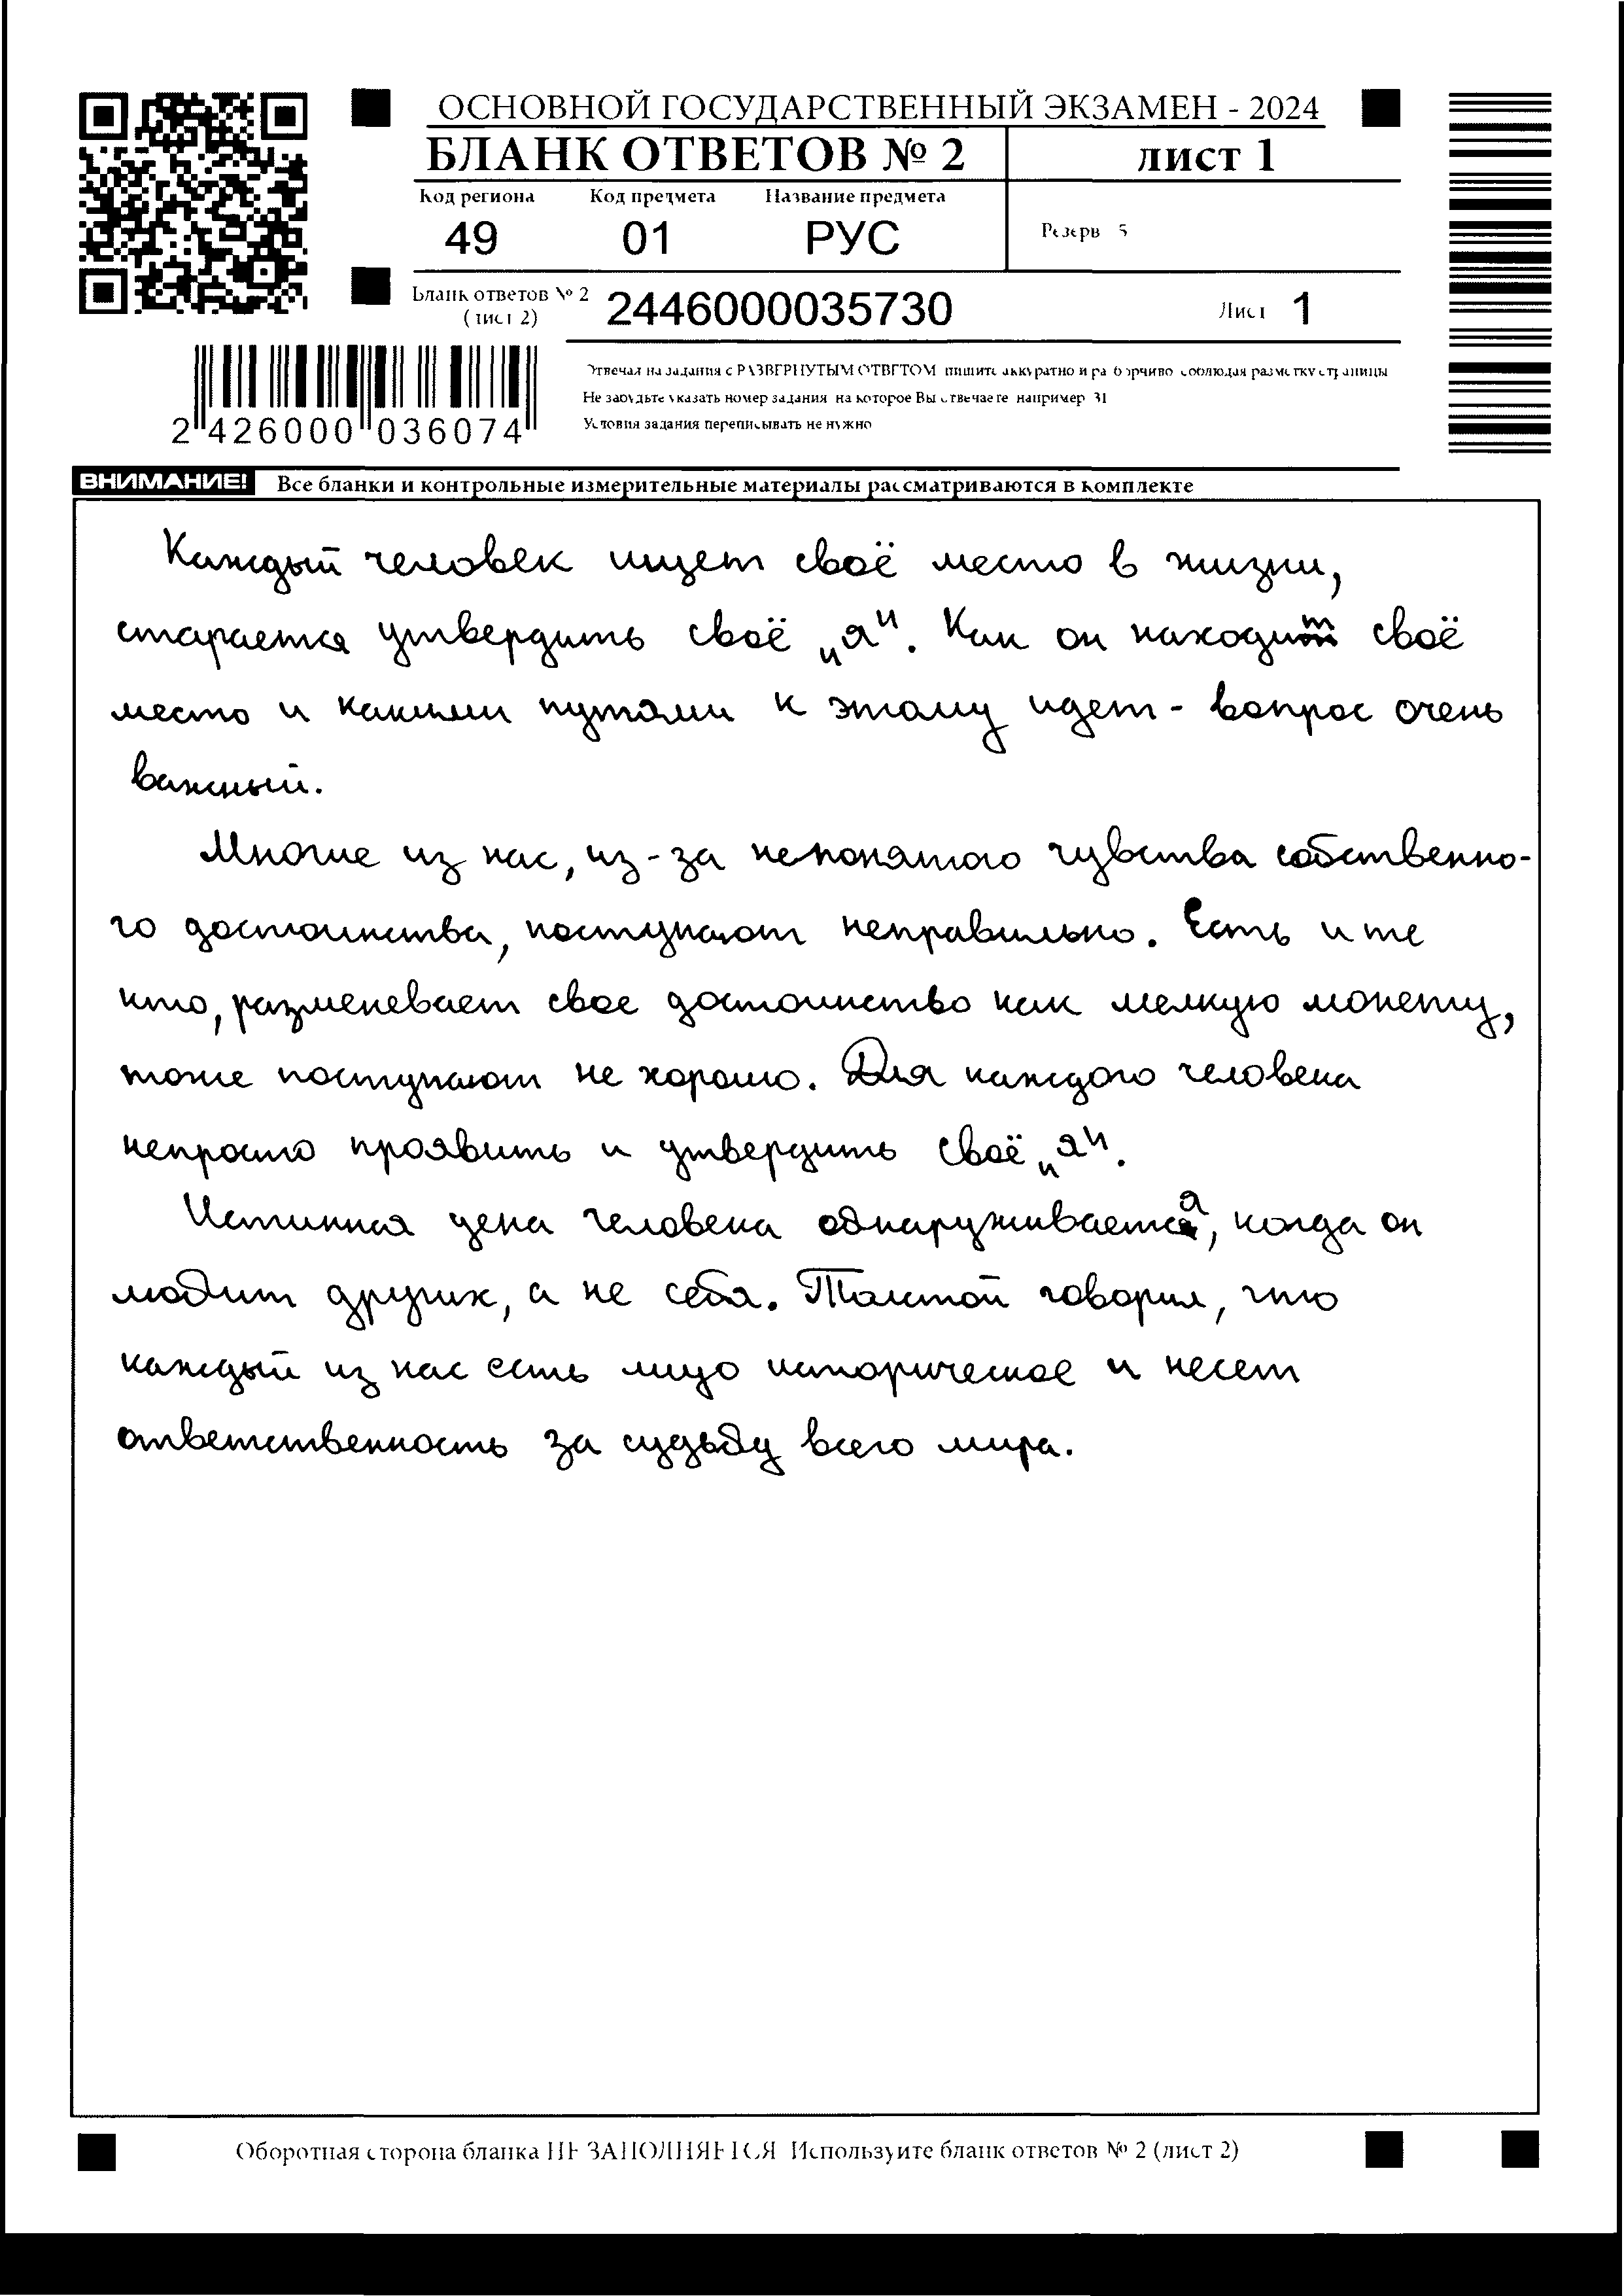 ОСНОВНОЙ ГОСУДАРСТВЕННЫЙ ЭКЗАМЕН - 2024
БЛАНК ОТВЕТОВ № 2 лист 1
Код региона Код предмета Название предмета
49 01 РУС Резерв 5
Бланк ответов № 2
(лист 2) 2446000035730 Лист 1
Отвечая на задания с РАЗВЕРНУТЫМ ОТВЕТОМ пишите аккуратно и разборчиво соблюдая разметку страницы
Не забудьте указать номер задания на которое Вы отвечаете например 31
Условия задания переписывать не нужно
2 426000 036074
ВНИМАНИЕ! Все бланки и контрольные измерительные материалы рассматриваются в комплекте
Каждый человек ищет своё место в жизни,
старается утвердить своё „я". Как он находит своё
место и какими путями к этому идет - вопрос очень
важный.
Многие из нас, из-за непонятого чувства собственно-
го достоинства, поступают неправильно. Есть и те
кто, разменевает свое достоинство как мелкую монету,
тоже поступают не хорошо. Для каждого человека
непросто проявить и утвердить своё „я".
Истинная цена человека обнаруживается, когда он
любит других, а не себя. Толстой говорил, что
каждый из нас есть лицо историческое и несет
ответственность за судьбу всего мира.
Оборотная сторона бланка НЕ ЗАПОЛНЯЕТСЯ Используите бланк ответов № 2 (лист 2)